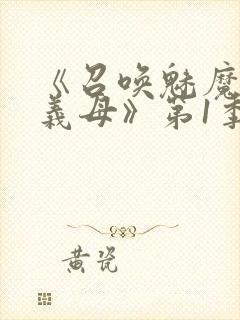 《召唤魅魔
義母》第1季
黄瓷